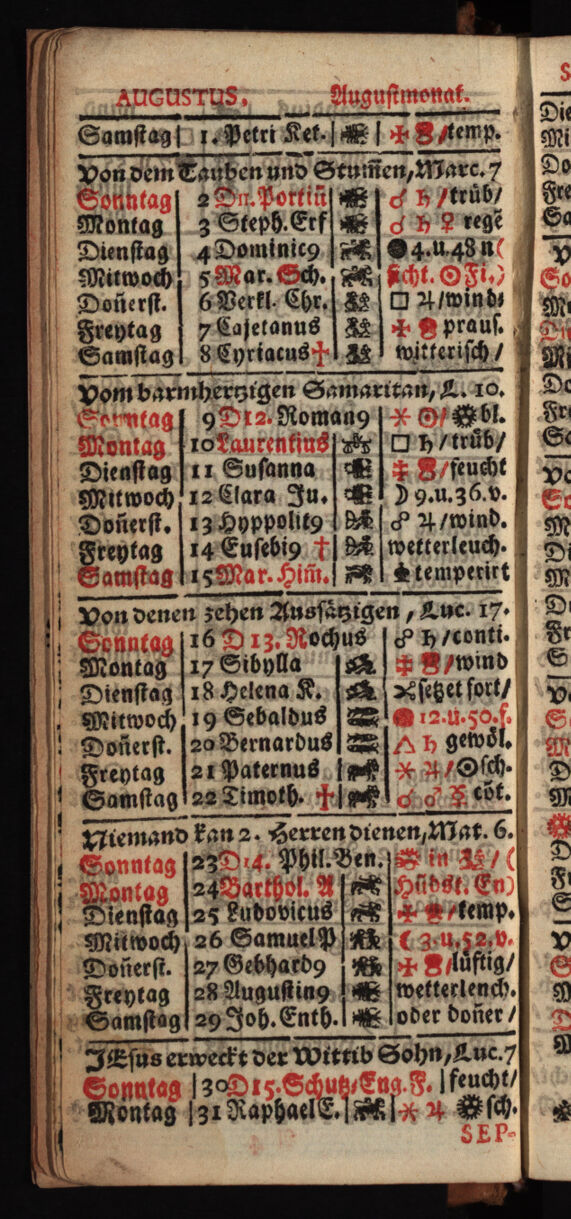 AUGUSTUS. Augustmonat.
Samstag 1. Petri Ket. temp.
Von dem Tauben und Stum̃en, Marc. 7
Sonntag 2 Dn. Portiũ ☌ ♄ /trüb/
Montag 3 Steph. Erf ☌ ♄ ♀ regẽ
Dienstag 4 Dominic9 ● 4. u. 48 n (
Mitwoch 5 Mar. Sch. ☉ Fi.)
Don̈erst. 6 Verkl. Chr. □ ♃ /wind⸗
Freytag 7 Cajetanus prauſ.
Samstag 8 Cyriacus † witterisch /
Vom barmhertzigen Samaritan, L. 10.
Sonntag 9 D12. Roman9 ⚹ ☉/ bl.
Montag 10 Laurentius □ ♄ /trüb/
Dienstag 11 Susanna /feucht
Mitwoch 12 Clara Ju. ☽ 9. u. 36. v.
Don̈erst. 13 Hyppolit9 ☍ ♃ /wind.
Freytag 14 Eusebi9 † wetterleuch.
Samstag 15 Mar. Him̃. temperirt
Von denen zehen Aussätzigen, Luc. 17.
Sonntag 16 D 13. Rochus ☍ ♄ /conti.
Montag 17 Sibylla /wind
Dienstag 18 Helena K. setzet fort/
Mitwoch 19 Sebaldus 12. u. 50. f.
Don̈erst. 20 Bernardus △ ♄ gewöl.
Freytag 21 Paternus ⚹ ♃ /☉sch.
Samstag 22 Timoth. † ☌ ♂ ☿ cöt.
Niemand kan 2. Herren dienen, Mat. 6.
Sonntag 23 D14. Phil. Ben. in / (
Montag 24 Barthol. A Hüdst. En)
Dienstag 25 Ludovicus /temp.
Mitwoch 26 Samuel P ☾ 3. u. 52. v.
Don̈erst. 27 Gebhard9 /lüftig/
Freytag 28 Augustin9 wetterleuch.
Samstag 29 Joh. Enth. oder don̈er /
JEsus erweckt der Wittib Sohn, Luc. 7
Sonntag 30 D15. Schutz⸗Eng. F. feucht/
Montag 31 Raphael E. ⚹ ♃ sch.
SEP⸗